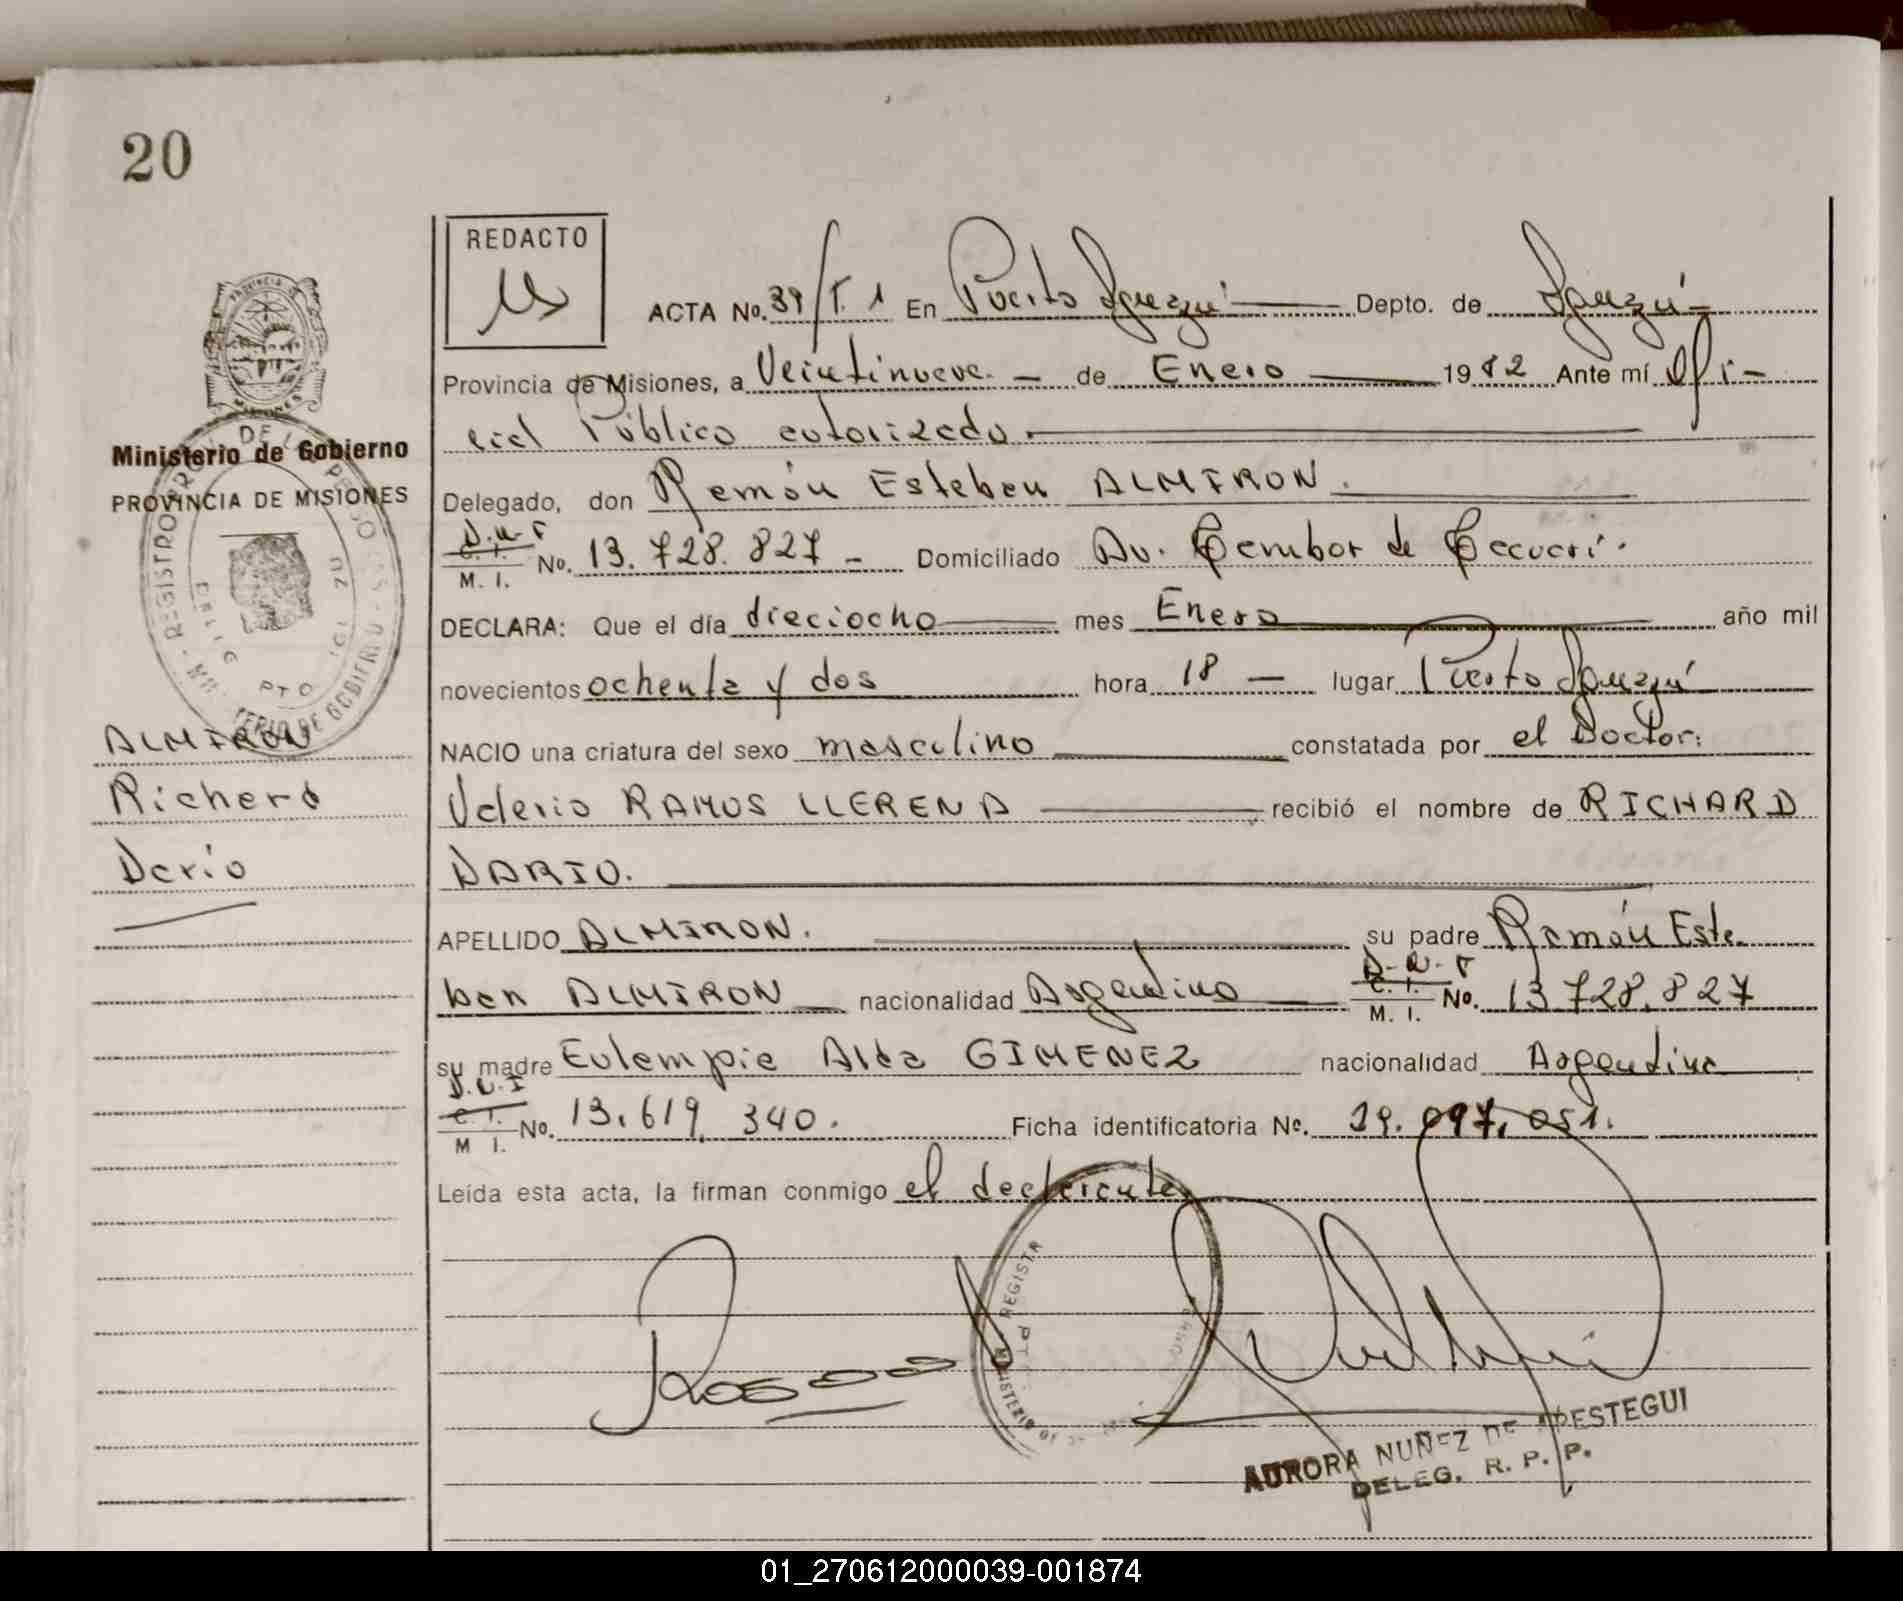 20
REDACTO
ACTA No. 39/T. 1 En Puerto Iguazú Depto. de Iguazú
Provincia de Misiones, a Veintinueve de Enero 1982 Ante mí Ofi-
cial Público autorizado
Ministerio de Gobierno
PROVINCIA DE MISIONES
Delegado, don Ramón Esteban ALMIRON.
D.N.I
C. I.
M. I.
No. 13.728.827 - Domiciliado Av. Tambor de Tacuarí.
DECLARA: Que el día dieciocho mes Enero año mil
novecientos ochenta y dos hora 18 — lugar Puerto Iguazú
NACIO una criatura del sexo masculino constatada por el Doctor:
Valerio RAMOS LLERENA recibió el nombre de RICHARD
DARIO.
ALMIRON
Richard
Dario
APELLIDO ALMIRON. su padre Ramón Este
ban ALMIRON nacionalidad Argentino D.N.I C. I. M. I. No. 13.728.827
su madre Eulampia Alda GIMENEZ nacionalidad Argentina
D.N.I
C. I.
M I.
No. 13.619.340. Ficha identificatoria No. 29.097.051.
Leída esta acta, la firman conmigo el declarante
AURORA NUÑEZ DE
DELEG. R. P. P.
01_270612000039-001874